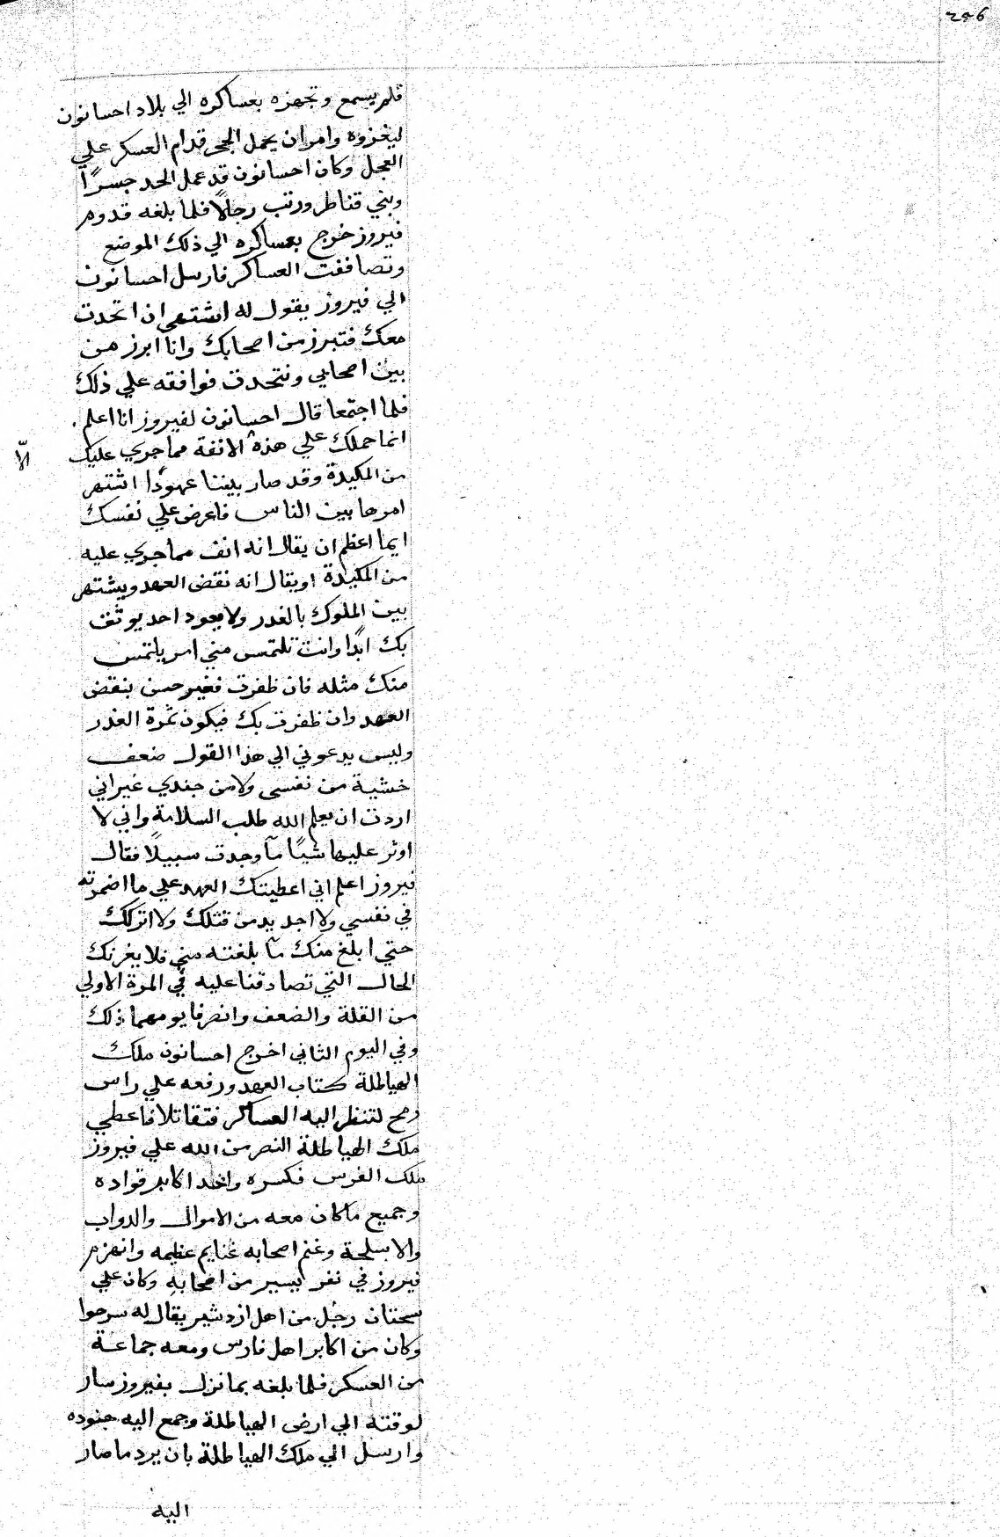 فلم يسمع وتجهزه بعساكره الي بلاد احسانون
ليغزوه وامر ان يحمل الحجر قدام العسكر علي
العجل وكان احسانون قد عمل الحد جسرًا
وبني قناطر ورتب رجالًا فلما بلغه قدوم
فيروز خرج بعساكره الي ذلك الموضع
وتصاففت العساكر فارسل احسانون
الي فيروز يقول له اشتهي ان اتحدت
معك فتبرز من اصحابك وانا ابرز من
بين اصحابي ونتحدت فوافقه علي ذلك
فلما اجتمعا قال احسانون لفيروز انا اعلم
انما حملك علي هذه الانفة مما جري عليك
الّا
من المكيدة وقد صار بيننا عهودًا اشتهر
امرها بين الناس فاعرض علي نفسك
ايما اعظم ان يقال انه انف مما جري عليه
من المكيدة او يقال انه نقض العهد ويشتهر
بين الملوك بالغدر ولا يعود احد يوثق
بك ابدًا وانت تلتمس مني امر يلتمس
منك مثله فان ظفرت فغير حسن بنقض
العهد وان ظفرت بك فيكون ثمرة الغدر
وليس يدعوني الي هذا القول ضعف
خشية من نفسي ولا من جندي غير اني
اردت ان يعلم الله طلب السلامة واني لا
اوثر عليها شيًا مآ وجدت سبيلًا فقال
فيروز اعلم اني اعطيتك العهد علي ما اضمرته
في نفسي ولا اجد بد من قتلك ولا اتركك
حتي ابلغ منك مآ بلغته مني فلا يغرنك
الحال التي تصادفنا عليه في المرة الاولي
من القلة والضعف وانصرفا يومهما ذلك
وفي اليوم الثاني اخرج احسانون ملك
الهياطلة كتاب العهد ورفعه علي راس
رمح لتنظر اليه العساكر فتقاتلا فاعطي
ملك الهياطلة النصر من الله علي فيروز
ملك الفرس فكسره واخد اكابر قواده
وجميع ما كان معه من الاموال والدواب
والاسلحة وغنم اصحابه غنايم عظيمه وانهزم
فيروز في نفر يسير من اصحابه وكان علي
سجتان رجل من اهل ازدشير يقال له سرحوا
وكان من اكابر اهل فارس ومعه جماعة
من العسكر فلما بلغه بما نزل بفيروز سار
لوقته الي ارض الهياطلة وجمع اليه جنوده
وارسل الي ملك الهياطلة بان يرد ما صار
اليه